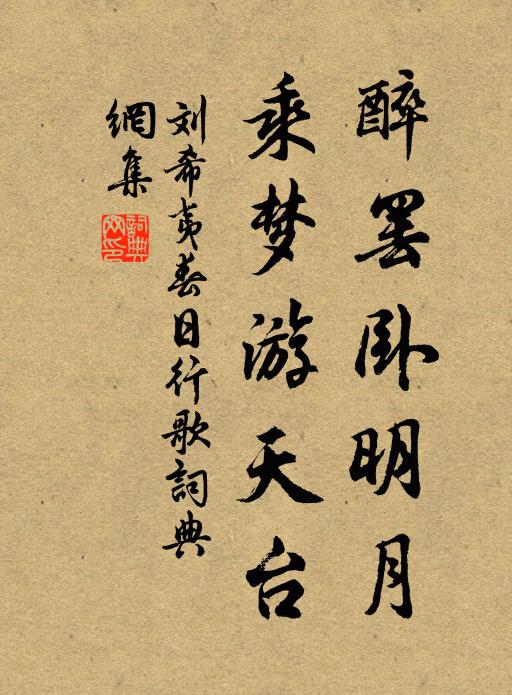 醉罢卧明月
乘梦游天台
刘希夷春日行歌詞典
網集
詞典
网印